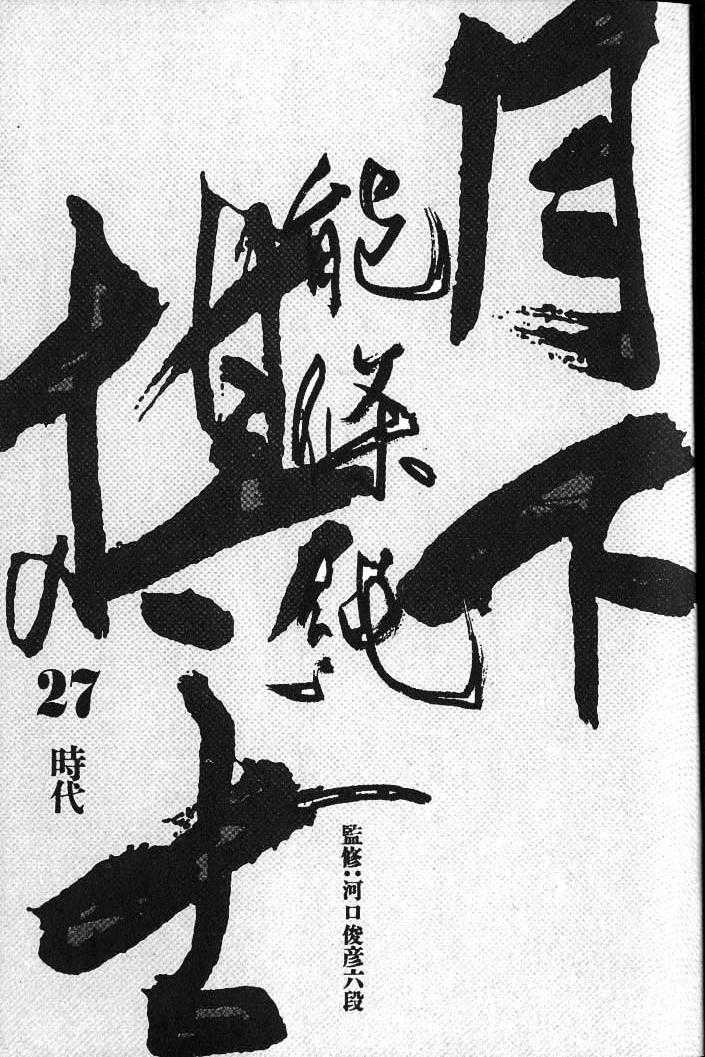 月下の棋士
能條純一
27
時代
監修：河口俊彦六段